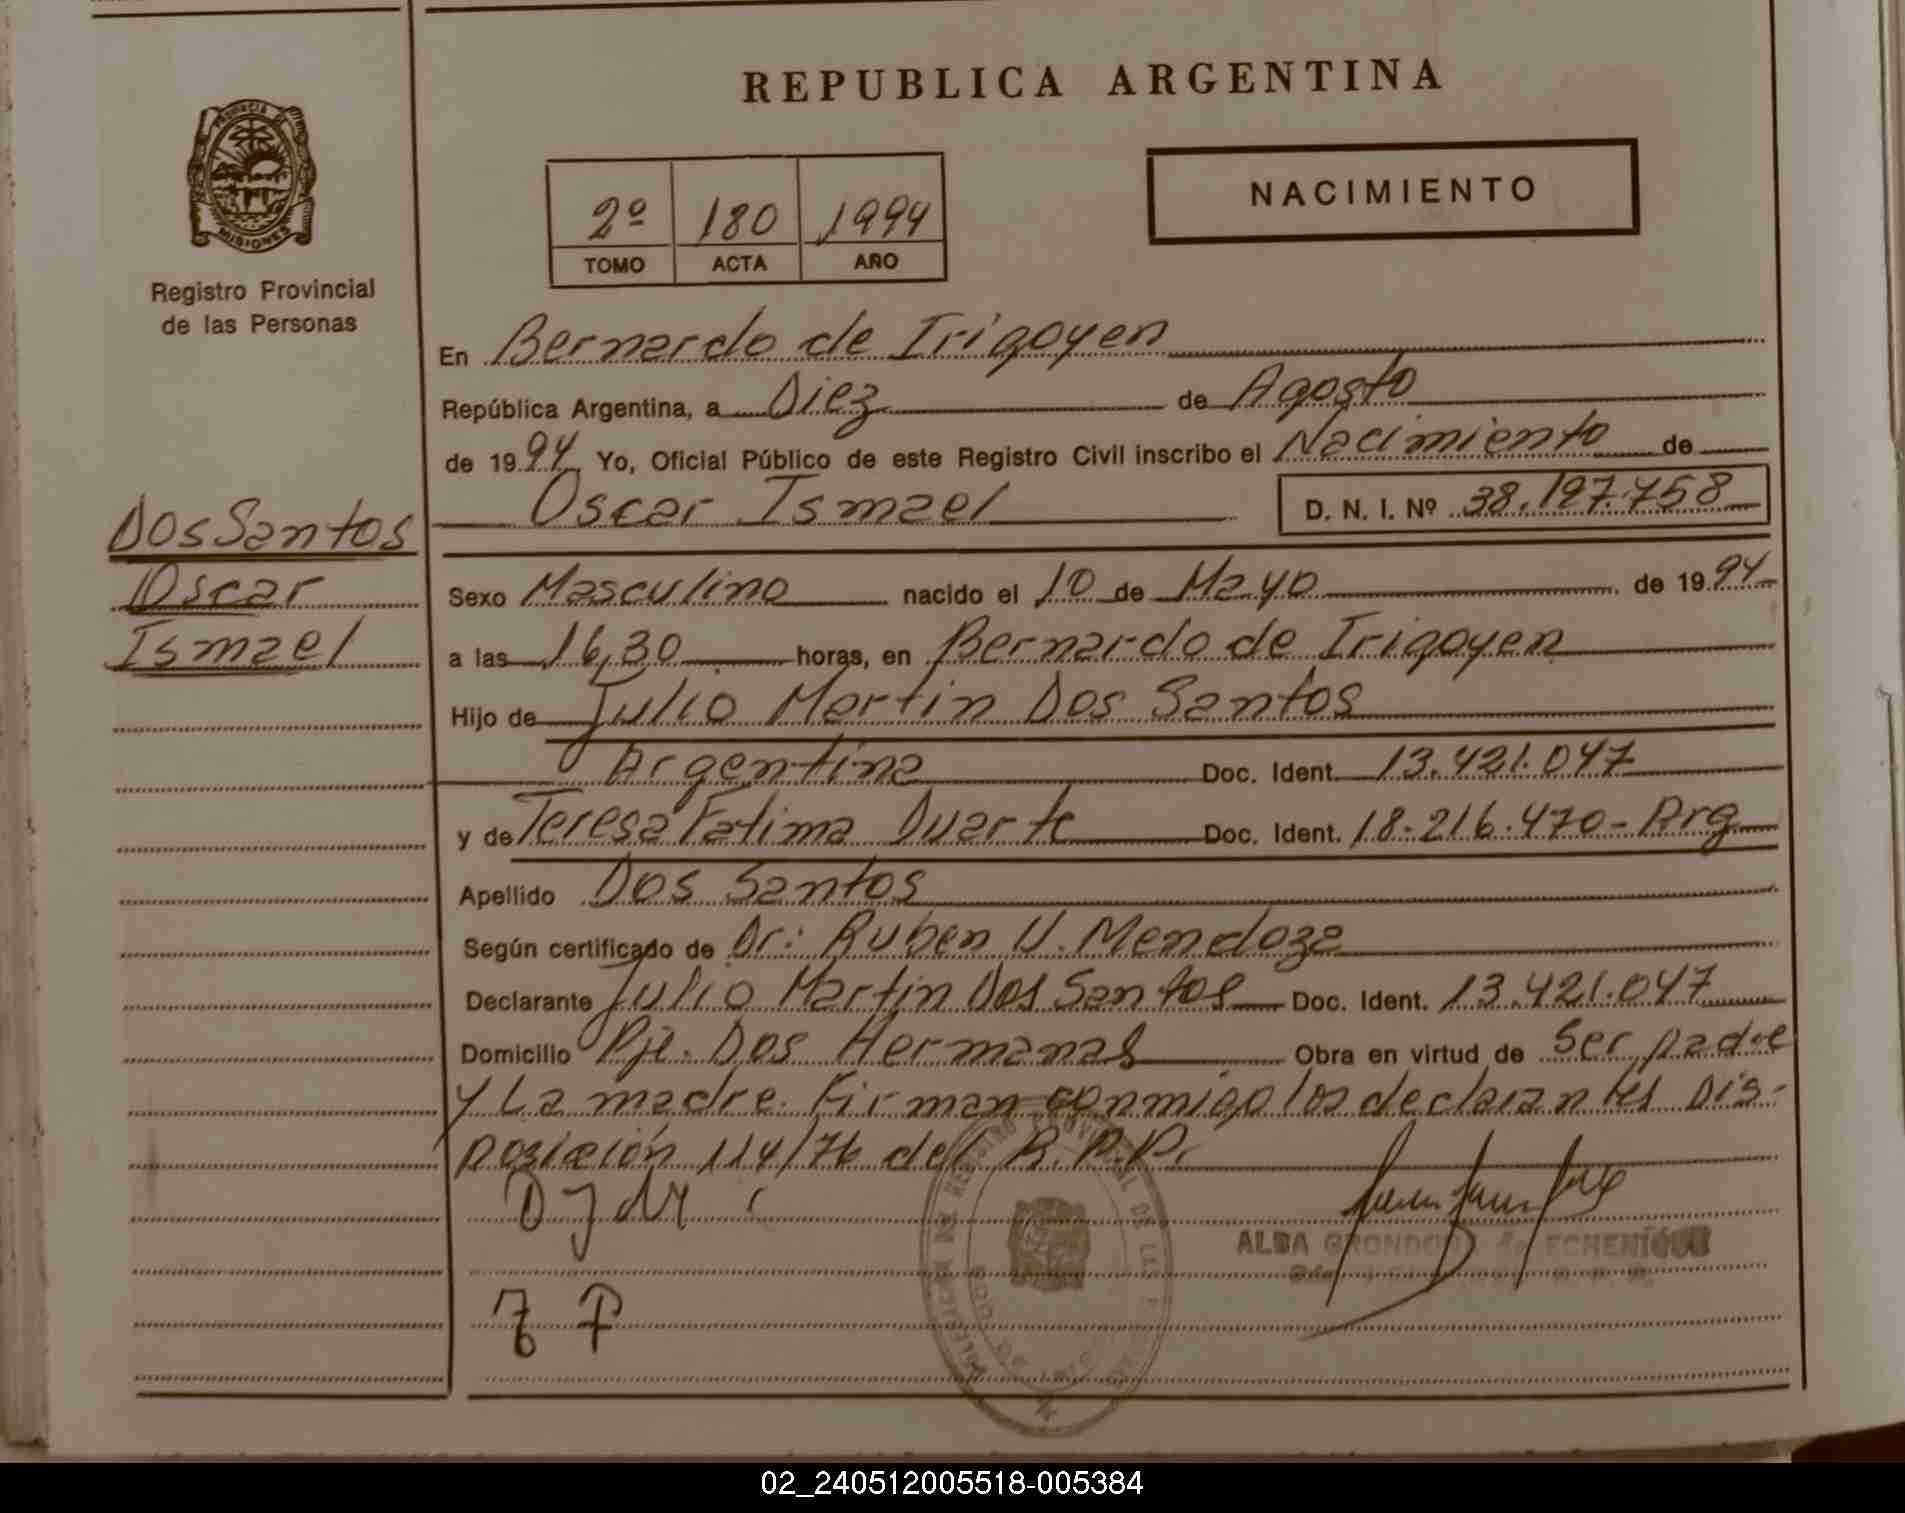 REPUBLICA ARGENTINA
PROVINCIA DE
MISIONES
Registro Provincial
de las Personas
NACIMIENTO
2º 180 1994
TOMO ACTA AÑO
En Bernardo de Irigoyen
República Argentina, a Diez de Agosto
de 1994 Yo, Oficial Público de este Registro Civil inscribo el Nacimiento de
Oscar Ismael D. N. I. Nº 38.197.758
Dos Santos
Oscar
Ismael
Sexo Masculino nacido el 10 de Mayo de 1994
a las 16,30 horas, en Bernardo de Irigoyen
Hijo de Julio Martin Dos Santos
Argentina Doc. Ident. 13.421.047
y de Teresa Fatima Duarte Doc. Ident. 18.216.470- Arg
Apellido Dos Santos
Según certificado de Dr: Ruben U. Mendoza
Declarante Julio Martin Dos Santos Doc. Ident. 13.421.047
Domicilio Pje. Dos Hermanas Obra en virtud de Ser padre
y La madre. Firman conmigo los declarantes Dis-
posición 114/76 del R.P.P.
ALBA de ECHENIQUE
02_240512005518-005384